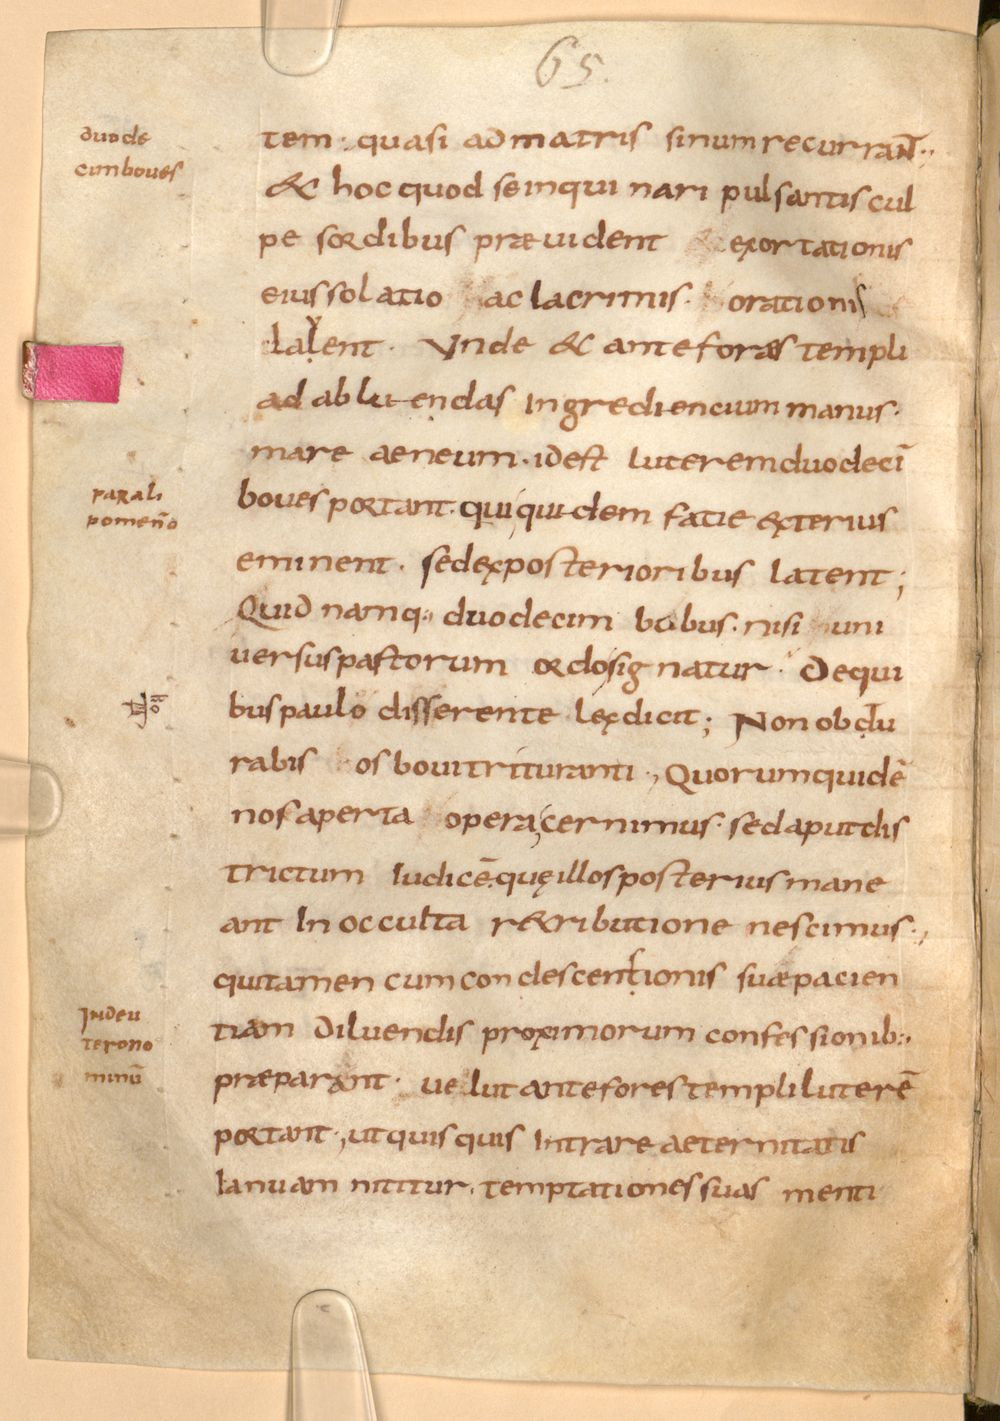 65.
duode
cim boues
tem · quasi ad matris sinum recurrant ·,
& hoc quod se inquinari pulsantis cul
pe sordibus præuident & exortationis
eius solatio ac lacrimis · orationis
lauent · Vnde & ante fores templi
ad abluendas ingrediencium manus ·
mare aeneum · id est luterem duodecī
boues portant · qui quidem fatie exterius
eminent · sed ex posterioribus latent ;
Quid namq· duodecim bobus · nisi uni
uersus pastorum ordo signatur · De qui
bus paulo disserente lex dicit ; Non obdu
rabis os boui trituranti ·, Quorum quidē
nos aperta opera cernimus · sed aput dis
trictum iudicē · quę illos posterius mane
ant in occulta r&ributione nescimus ·,
qui tamen cum condescentionis suæ pacien
tiam diluendis proximorum confessionib:·
præparant · uelut ante fores templi luterē
portant ·, ut quisquis intrare aeternitatis
ianuam nititur · temptationes suas menti
parali
pomeno̅
In deu
terono
minū